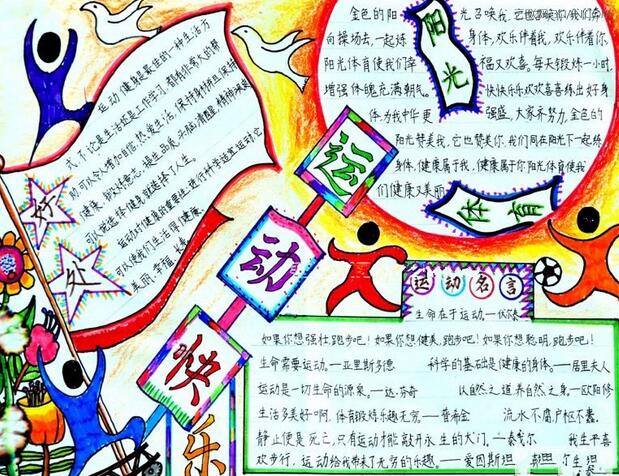 运动健身是最佳的一种生活方
式,不论是生活还是工作学习,都有非常大的帮
助,可以令人增加自信,热爱生活,保持身材并且保持
健康,锻炼意志,提生品质,头脑清醒,精神涣发
可以说选择健身就选择了人生。
运动对健康的重要性:进行科学适宜运动它
可以使我们生活得健康、
美丽、幸福、长寿
好
处
金色的阳光召唤我,它也召唤你,我们奔
向操场去,一起炼身体,欢乐伴着我,欢乐伴着你,
阳光体育使我们幸福又欢喜。每天锻炼一小时,
增强体魄充满朝气。快快乐乐欢欢喜喜练出好身
体,为我中华更强盛,大家齐努力,金色的
阳光赞美我,它也赞美你,我们同在阳光下一起练
身体,健康属于我,健康属于你阳光体育使我
们健康又美丽
阳光
体育
运
动
快
乐
运动名言
生命在于运动,——伏尔泰
如果你想强壮,跑步吧!如果你想健美,跑步吧!如果你想聪明,跑步吧!
生命需要运动。——亚里斯多德 科学的基础是健康的身体。——居里夫人
运动是一切生命的源泉。——达·芬奇 以自然之道,养自然之身。——欧阳修
生活多美好啊,体育锻炼乐趣无穷。——普希金 流水不腐,户枢不蠹。
静止便是死亡,只有运动才能敲开永生的大门。——泰戈尔 我生平喜
欢步行,运动给我带来了无穷的乐趣。——爱因斯坦